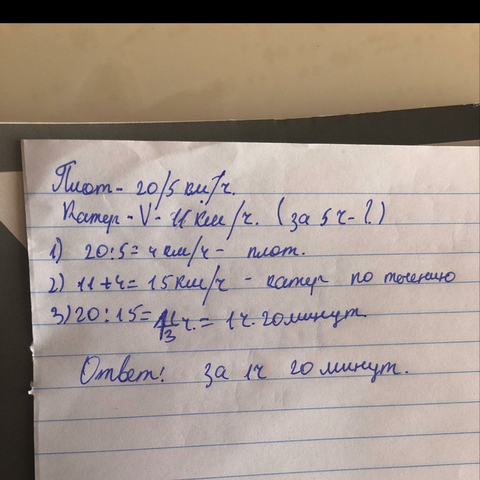 Плот - 20/5 км/ч.
Катер - V - 11 км/ч. (за 5ч - ?)
1) 20:5=4км/ч - плот.
2) 11+4=15км/ч - катер по течению
3) 20:15= 1 1/3 ч. = 1ч. 20минут.
Ответ: за 1ч 20 минут.